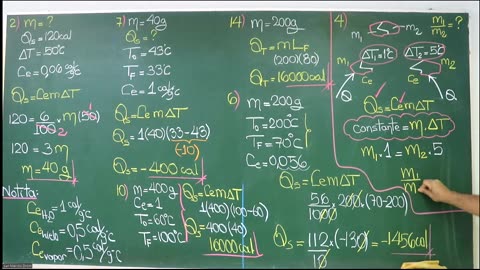 2) m = ?
Qs = 120cal
ΔT = 50°C
Ce = 0,06 cal/g°C
Qs = Ce m ΔT
120 = 6/100 · m (50)
2
120 = 3m
m = 40g
Notita:
Ce H2O = 1 cal/g°C
Ce hielo = 0,5 cal/g°C
Ce vapor = 0,5 cal/g°C
7) m = 40g
Qs = ?
To = 43°C
TF = 33°C
Ce = 1 cal/g°C
Qs = Ce m ΔT
Qs = 1(40)(33-43)
(-10)
Qs = -400cal
10) m = 400g
Ce = 1
To = 60°C
TF = 100°C
Qs = Ce m ΔT
1(400)(100-60)
Qs = 400(40)
16000cal
14) m = 200g
QT = ?
QT = m LF
(200)(80)
QT = 16000cal
6) m = 200g
To = 200°C
TF = 70°C
Ce = 0,056
Qs = Ce m ΔT
56/1000 · 200 · (70-200)
Qs = 112/10 (-130) = -1456cal
4) m1/m2 = ?
m1 ΔT1 = 1°C
ΔT2 = 5°C m2
Ce Ce
Q Q
Qs = Ce m ΔT
constante = m · ΔT
m1 · 1 = m2 · 5
m1
m